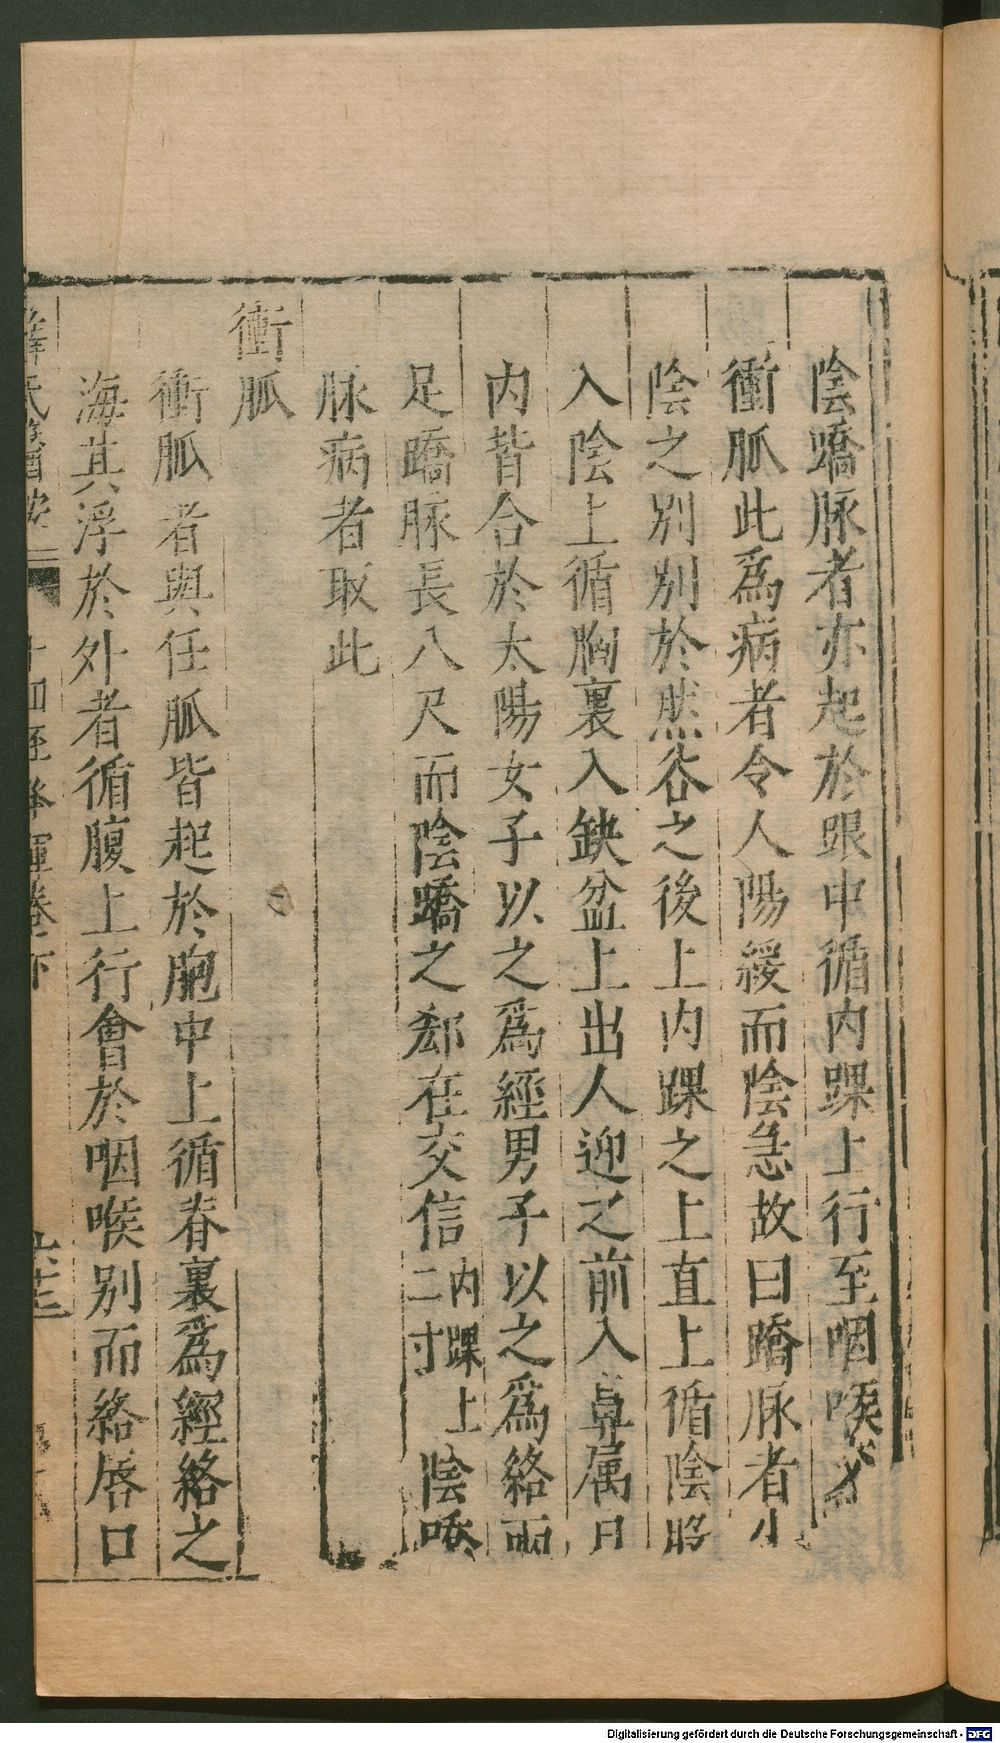 陰蹻脉者亦起於跟中循内踝上行至咽喉交
衝脈此爲病者令人陽緩而陰急故曰蹻脉者少
陰之别别於然谷之後上内踝之上直上循陰股
入陰上循胸裏入缺盆上出人迎之前入鼻属目
内眥合於太陽女子以之爲經男子以之爲絡兩
足蹻脉長八尺而陰蹻之郄在交信内踝上二寸陰蹻
脉病者取此
衝脈
衝脈者與任脈皆起於胞中上循脊裏爲經絡之
海其浮於外者循腹上行會於咽喉别而絡唇口
薛氏醫按二 十四經發揮卷下
Digitalisierung gefördert durch die Deutsche Forschungsgemeinschaft - DFG